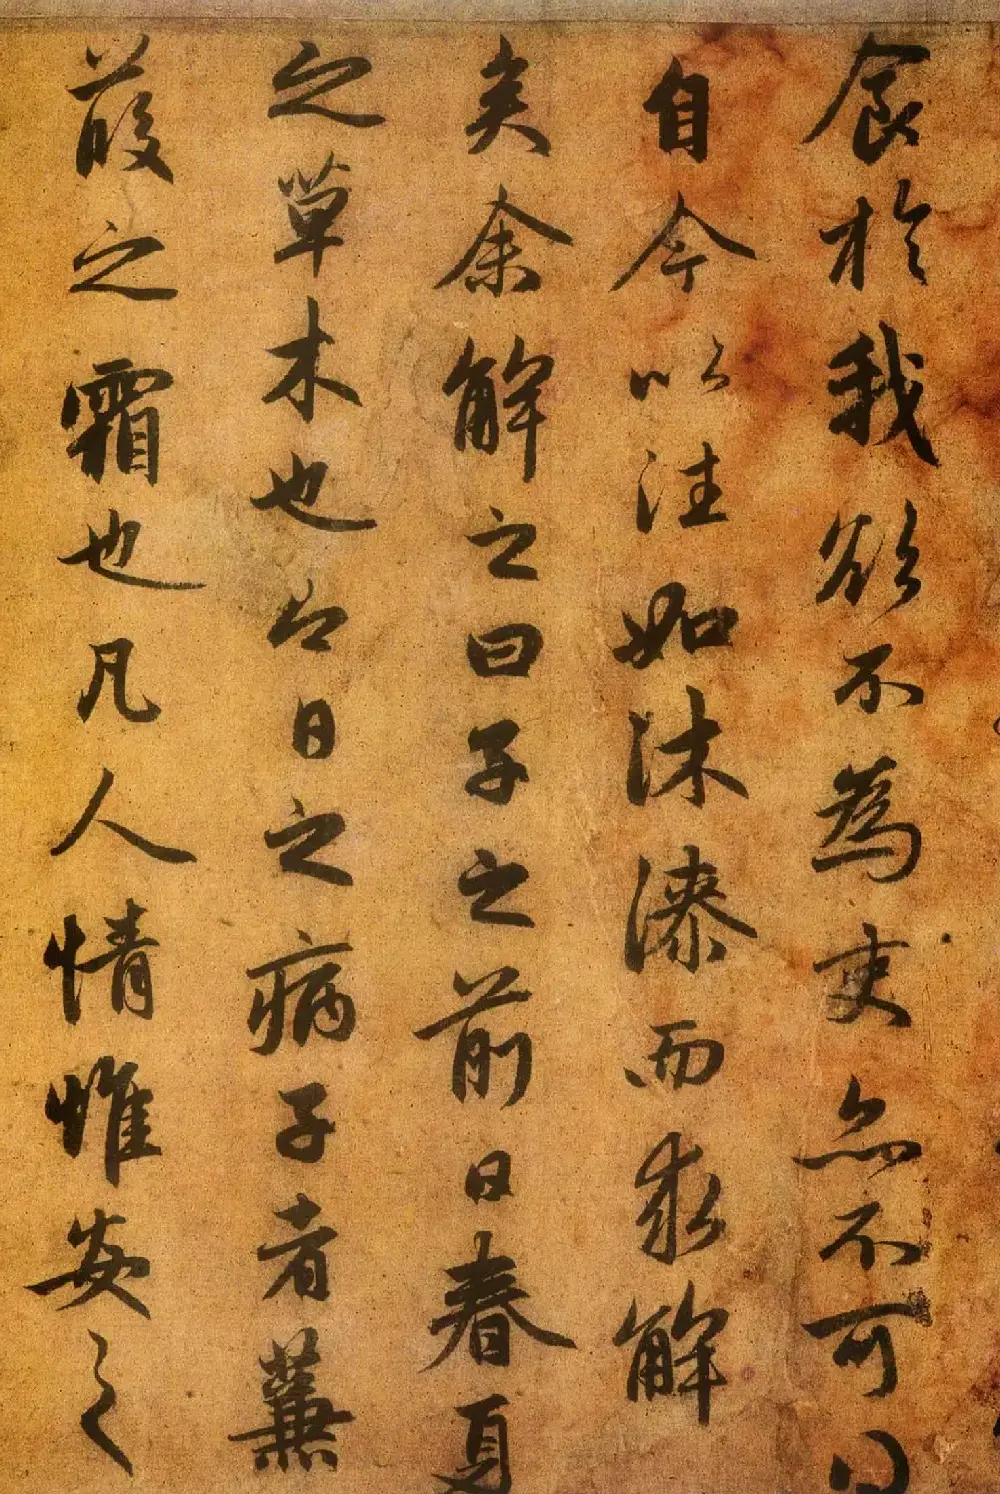 食於我欲不為吏亦不可
自今以往如沐漆而求解
矣余解之曰子之前日春夏
之草木也今日之病子者蒹
葭之霜也凡人情惟安之